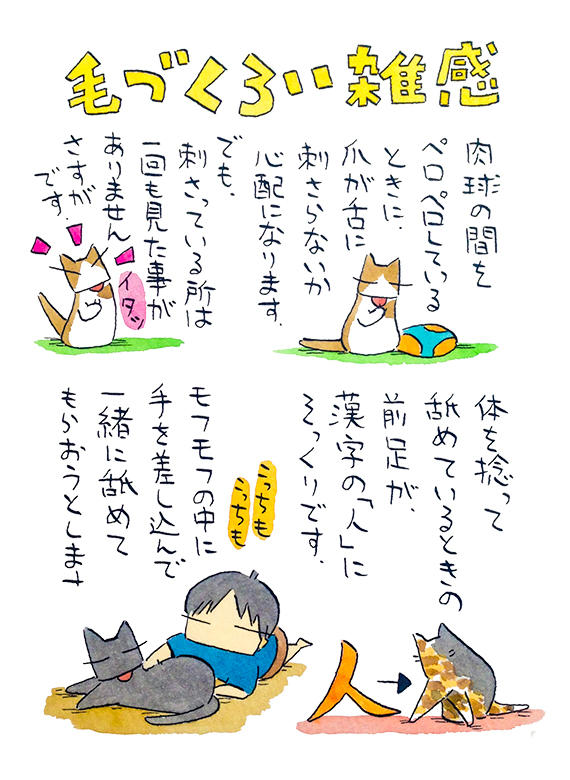 毛づくろい雑感
肉球の間を
ペロペロしている
ときに、
爪が舌に
刺さらないか
心配になります。
でも、
刺さっている所は
一回も見た事が
ありません
さすが
です。
イタッ
体を捻って
舐めているときの
前足が、
漢字の「人」に
そっくりです。
人
モフモフの中に
手を差し込んで
一緒に舐めて
もらおうとします
こっちも
こっちも